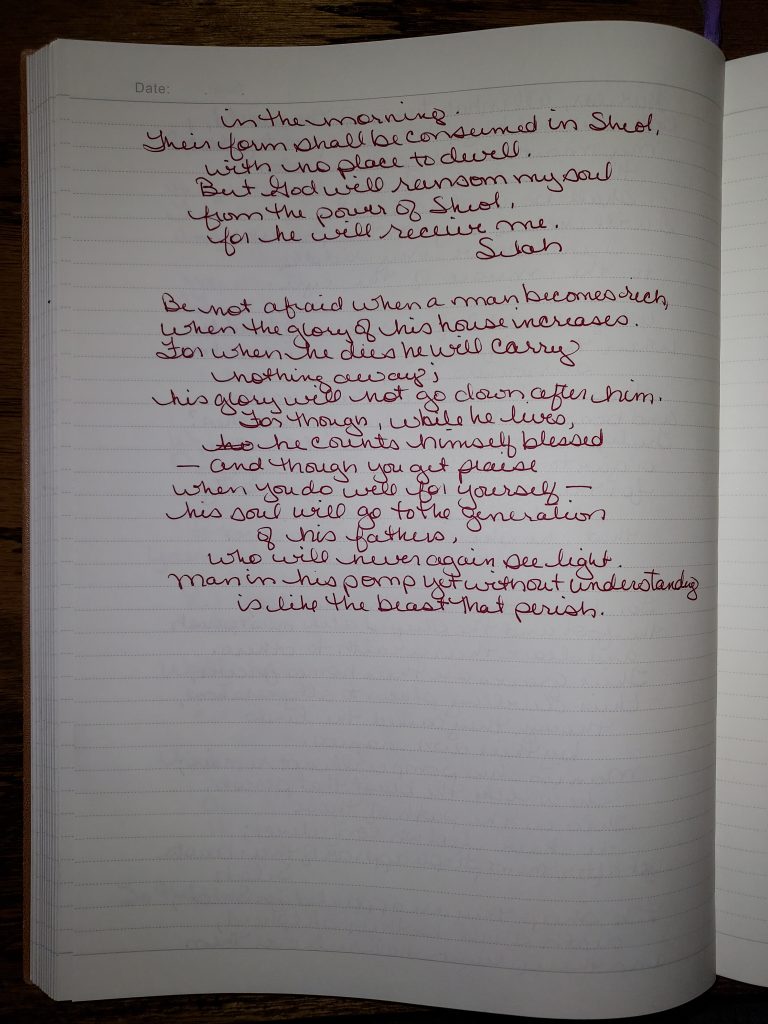 Date:
in the morning.
Their form shall be consumed in Sheol,
with no place to dwell.
But God will ransom my soul
from the power of Sheol,
for he will receive me.
Selah
Be not afraid when a man becomes rich,
when the glory of his house increases.
For when he dies he will carry
nothing away;
his glory will not go down after him.
For though, while he lives,
he counts himself blessed
— and though you get praise
when you do well for yourself —
his soul will go to the generation
of his fathers,
who will never again see light.
Man in his pomp yet without understanding
is like the beast that perish.